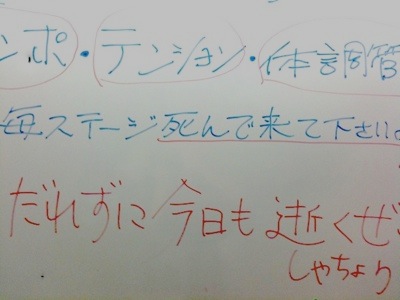 ンポ・テンション・体調管
毎ステージ死んで来て下さい。
だれずに今日も逝くぜ
しゃちょり